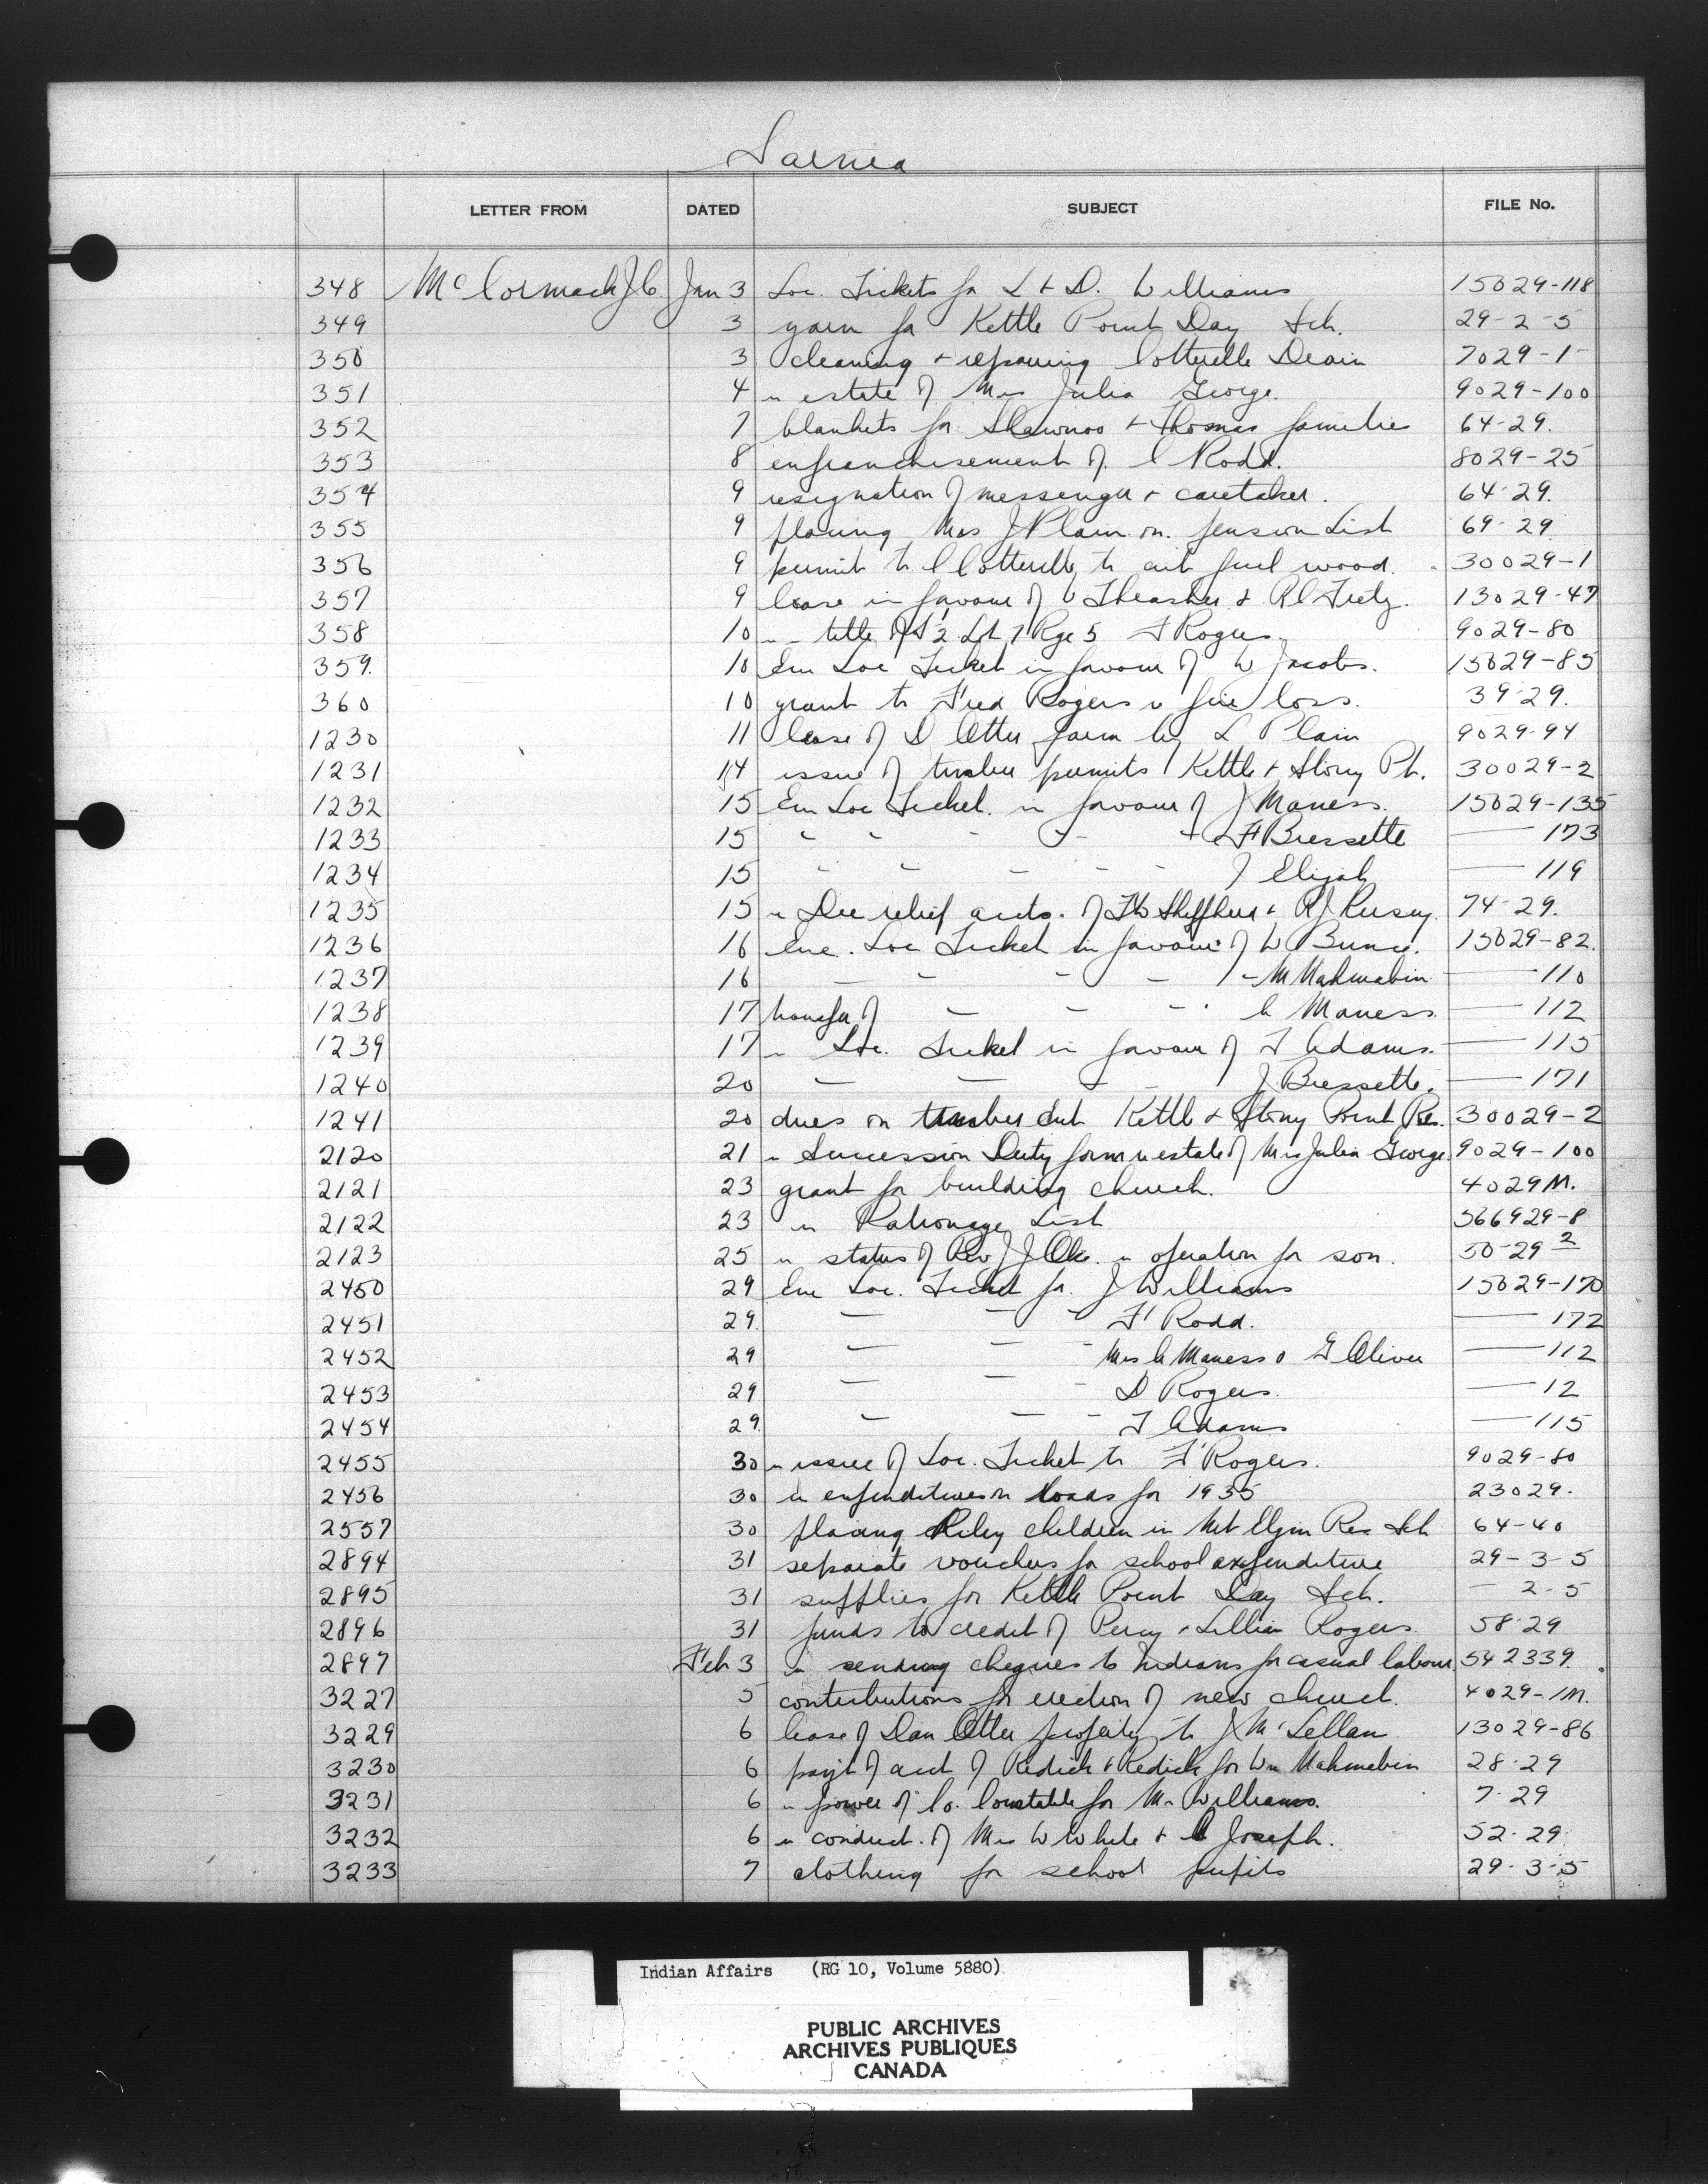 Sarnia
LETTER FROM DATED SUBJECT FILE No.
348 McCormack J.C. Jan 3 Loc. Tickets for L + D. Williams 15029-118
349 3 yarn for Kettle Point Day Sch. 29-2-5
350 3 cleaning + repairing Cotterelle Drain 7029-1
351 4 re estate of Mrs Julia George. 9029-100
352 7 blankets for Shawnoo + Thomas families 64-29.
353 8 enfranchisement of C Rodd. 8029-25
354 9 resignation of messenger + caretaker. 64-29.
355 9 placing Mrs J Plain on pension List 69-29
356 9 permit to C Cotterelle to cut fuel wood. 30029-1
357 9 lease in favour of Thrasher & R C Fretz. 13029-47
358 10 title of 2 Lot 7 Rge 5 F Rogers. 9029-80
359. 10 Loc Ticket in favour of W Jacobs. 15029-85
360 10 grant to Fred Rogers fire loss. 39-29.
1230 11 lease of D Otter farm by L Plain 9029-94
1231 14 issue of timber permits Kettle + Stony Pt. 30029-2
1232 15 Loc Ticket in favour of J Maness. 15029-135
1233 15 " " " " F Bressette — 173
1234 15 " " " " " J Elijah — 119
1235 15 re Dec relief accts. of & R J Kersey. 74-29.
1236 16 Loc Ticket in favour of W Bunce. 15029-82.
1237 16 " " " " M Mahmabin — 110
1238 17 transfer of " " " Maness. — 112
1239 17 re Loc. Ticket in favour of T Adams. — 115
1240 20 " " " " J. Bressette. — 171
1241 20 dues on timber cut Kettle & Stony Point Res. 30029-2
2120 21 re Succession Duty form re estate of Mrs Julia George. 9029-100
2121 23 grant for building church. 4029M.
2122 23 re Patronage List 566929-8
2123 25 re status of Rev J J re operation for son. 50-29 2
2450 29 Loc. Ticket for J Williams 15029-170
2451 29. " " " F Rodd. — 172
2452 29 " " " Mrs Maness G Oliver — 112
2453 29 " " " D Rogers. — 12
2454 29. " " " T Adams — 115
2455 30 re issue of Loc. Ticket to F Rogers. 9029-80
2456 30 re expenditures on roads for 1935 23029.
2557 30 placing Riley children in Mt Elgin Res Sch 64-40
2894 31 separate vouchers for school expenditure 29-3-5
2895 31 supplies for Kettle Point Day Sch. — 2-5
2896 31 funds to credit of Percy + Lillian Rogers 58-29
2897 Feb 3 re sending cheques to Indians for casual labour 542339.
3227 5 contributions for erection of new church. 4029-1M.
3229 6 lease of Dan Otter property to J McLellan 13029-86
3230 6 payt of acct of Redick & Redick for Wm Mahmabin 28-29
3231 6 re power of Co. Constable for Mr Williams. 7-29
3232 6 re conduct of Mrs W White + Joseph. 52-29
3233 7 clothing for school pupils 29-3-5
Indian Affairs (RG 10, Volume 5880)
PUBLIC ARCHIVES
ARCHIVES PUBLIQUES
CANADA